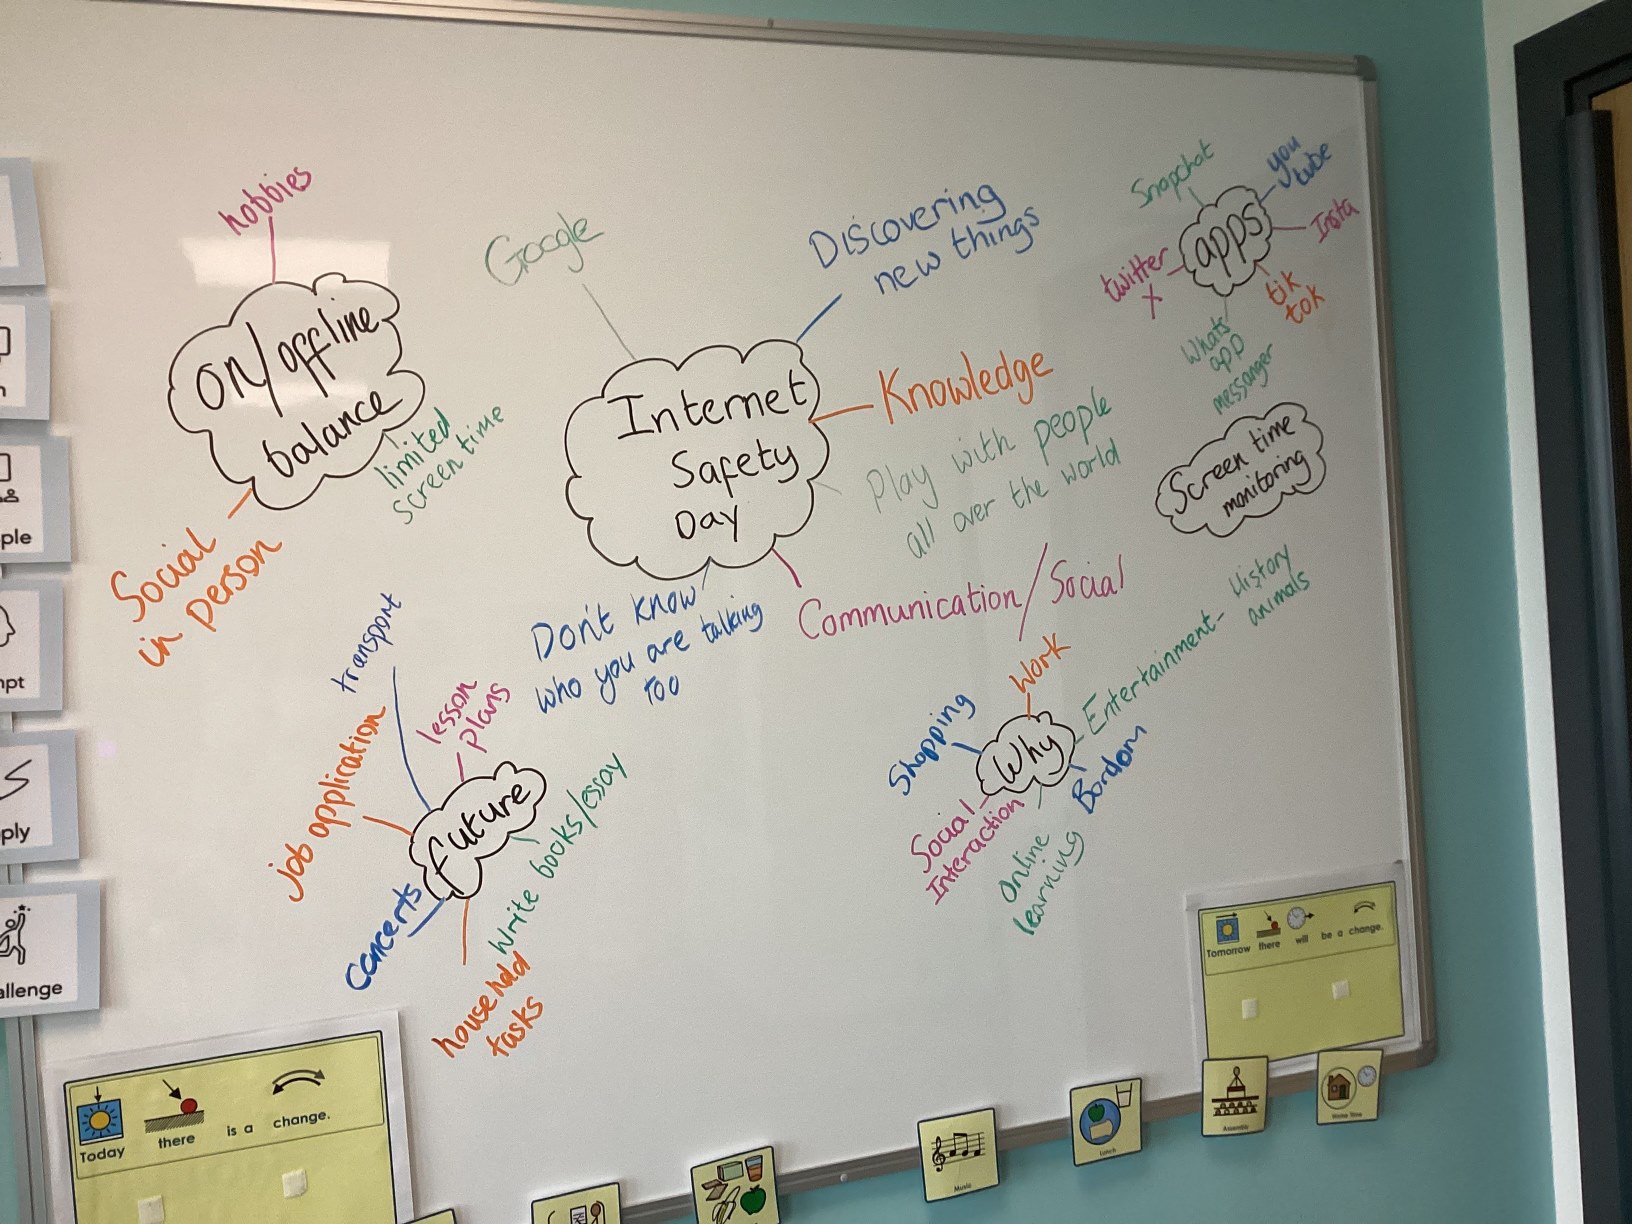 hobbies
on/offline
balance
limited
screen time
Social
in person
Google
Discovering
new things
Internet
Safety
Day
Knowledge
Play with people
all over the world
Communication/Social
Don't know
who you are talking
too
Snapchat
you
tube
apps
Insta
twitter
X
tik
tok
Whats
app
messanger
Screen time
monitoring
transport
lesson
plans
job application
future
Write books/essay
concerts
household
tasks
Work
Shopping
Why
Entertainment- History
animals
Bordom
Social
Interaction
Online
learning
ple
mpt
ply
allenge
Today there is a change.
Tomorrow there will be a change.
Music
Lunch
Assembly
Home Time